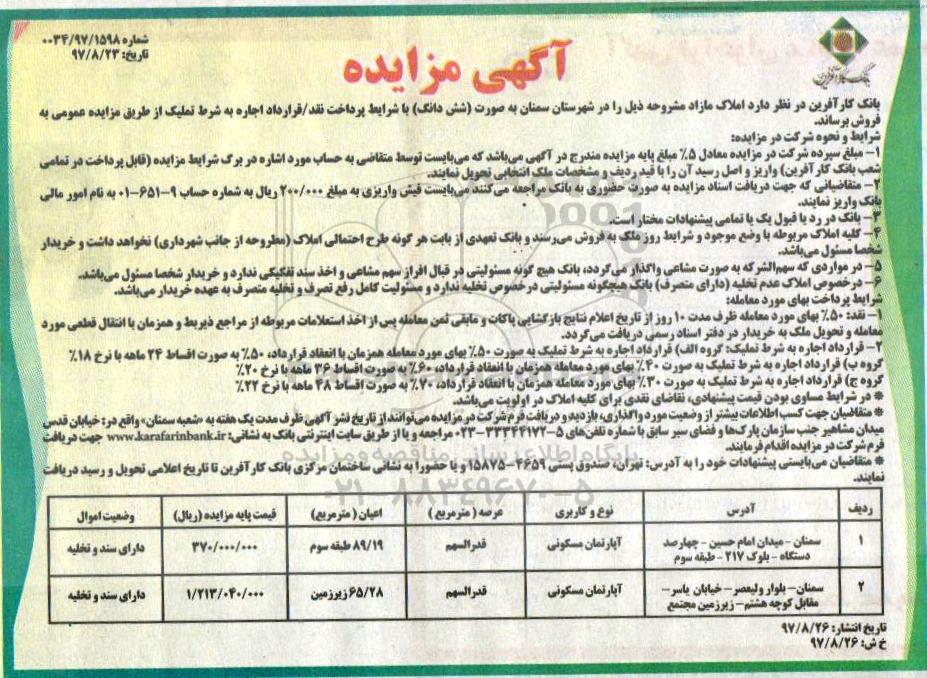 شماره ۰۰۳۴/۹۷/۱۵۹۸
تاریخ: ۹۷/۸/۲۳
بانک کارآفرین
آگهی مزایده
بانک کارآفرین در نظر دارد املاک مازاد مشروحه ذیل را در شهرستان سمنان به صورت (شش دانگ) با شرایط پرداخت نقد/قرارداد اجاره به شرط تملیک از طریق مزایده عمومی به
فروش برساند.
شرایط و نحوه شرکت در مزایده:
۱- مبلغ سپرده شرکت در مزایده معادل ۵٪ مبلغ پایه مزایده مندرج در آگهی می‌باشد که می‌بایست توسط متقاضی به حساب مورد اشاره در برگ شرایط مزایده (قابل پرداخت در تمامی
شعب بانک کارآفرین) واریز و اصل رسید آن را با قید ردیف و مشخصات ملک انتخابی تحویل نمایند.
۲- متقاضیانی که جهت دریافت اسناد مزایده به صورت حضوری به بانک مراجعه می‌کنند می‌بایست فیش واریزی به مبلغ ۲۰۰/۰۰۰ ریال به شماره حساب ۹-۶۵۱-۰۱ به نام امور مالی
بانک واریز نمایند.
۳- بانک در رد یا قبول یک یا تمامی پیشنهادات مختار است.
۴- کلیه املاک مربوطه با وضع موجود و شرایط روز ملک به فروش می‌رسند و بانک تعهدی از بابت هر گونه طرح احتمالی املاک (مطروحه از جانب شهرداری) نخواهد داشت و خریدار
شخصا مسئول می‌باشد.
۵- در مواردی که سهم‌الشرکه به صورت مشاعی واگذار می‌گردد، بانک هیچ گونه مسئولیتی در قبال افراز سهم مشاعی و اخذ سند تفکیکی ندارد و خریدار شخصا مسئول می‌باشد.
۶- درخصوص املاک عدم تخلیه (دارای متصرف) بانک هیچگونه مسئولیتی درخصوص تخلیه ندارد و مسئولیت کامل رفع تصرف و تخلیه متصرف به عهده خریدار می‌باشد.
شرایط پرداخت بهای مورد معامله:
۱- نقد: ۵۰٪ بهای مورد معامله ظرف مدت ۱۰ روز از تاریخ اعلام نتایج بازگشایی پاکات و مابقی ثمن معامله پس از اخذ استعلامات مربوطه از مراجع ذیربط و همزمان با انتقال قطعی مورد
معامله و تحویل ملک به خریدار در دفتر اسناد رسمی دریافت می‌گردد.
۲- قرارداد اجاره به شرط تملیک: گروه الف) قرارداد اجاره به شرط تملیک به صورت ۵۰٪ بهای مورد معامله همزمان با انعقاد قرارداد، ۵۰٪ به صورت اقساط ۲۴ ماهه با نرخ ۱۸٪
گروه ب) قرارداد اجاره به شرط تملیک به صورت ۴۰٪ بهای مورد معامله همزمان با انعقاد قرارداد، ۶۰٪ به صورت اقساط ۳۶ ماهه با نرخ ۲۰٪
گروه ج) قرارداد اجاره به شرط تملیک به صورت ۳۰٪ بهای مورد معامله همزمان با انعقاد قرارداد، ۷۰٪ به صورت اقساط ۴۸ ماهه با نرخ ۲۲٪
* در شرایط مساوی بودن قیمت پیشنهادی، تقاضای نقدی برای کلیه املاک در اولویت می‌باشد.
* متقاضیان جهت کسب اطلاعات بیشتر از وضعیت مورد واگذاری، بازدید و دریافت فرم شرکت در مزایده می‌توانند از تاریخ نشر آگهی ظرف مدت یک هفته به «شعبه سمنان» واقع در: خیابان قدس
میدان مشاهیر جنب سازمان پارک‌ها و فضای سبز سابق با شماره تلفن‌های ۵-۳۳۳۴۴۱۷۲-۰۲۳ مراجعه و یا از طریق سایت اینترنتی بانک به نشانی: www.karafarinbank.ir جهت دریافت
فرم شرکت در مزایده اقدام فرمایند.
* متقاضیان می‌بایستی پیشنهادات خود را به آدرس: تهران، صندوق پستی ۴۶۵۹-۱۵۸۷۵ و یا حضورا به نشانی ساختمان مرکزی بانک کارآفرین تا تاریخ اعلامی تحویل و رسید دریافت
نمایند.
پایگاه اطلاع رسانی مناقصه و مزایده
۰۲۱-۸۸۳۴۹۶۷۰-۵
ردیف آدرس نوع و کاربری عرصه (مترمربع) اعیان (مترمربع) قیمت پایه مزایده (ریال) وضعیت اموال
۱ سمنان - میدان امام حسین - چهارصد دستگاه - بلوک ۲۱۷ - طبقه سوم آپارتمان مسکونی قدرالسهم ۸۹/۱۹ طبقه سوم ۳۷۰/۰۰۰/۰۰۰ دارای سند و تخلیه
۲ سمنان - بلوار ولیعصر - خیابان یاسر - مقابل کوچه هشتم - زیرزمین مجتمع آپارتمان مسکونی قدرالسهم ۶۵/۲۸ زیرزمین ۱/۲۱۳/۰۴۰/۰۰۰ دارای سند و تخلیه
تاریخ انتشار: ۹۷/۸/۲۶
خ ش: ۹۷/۸/۲۶